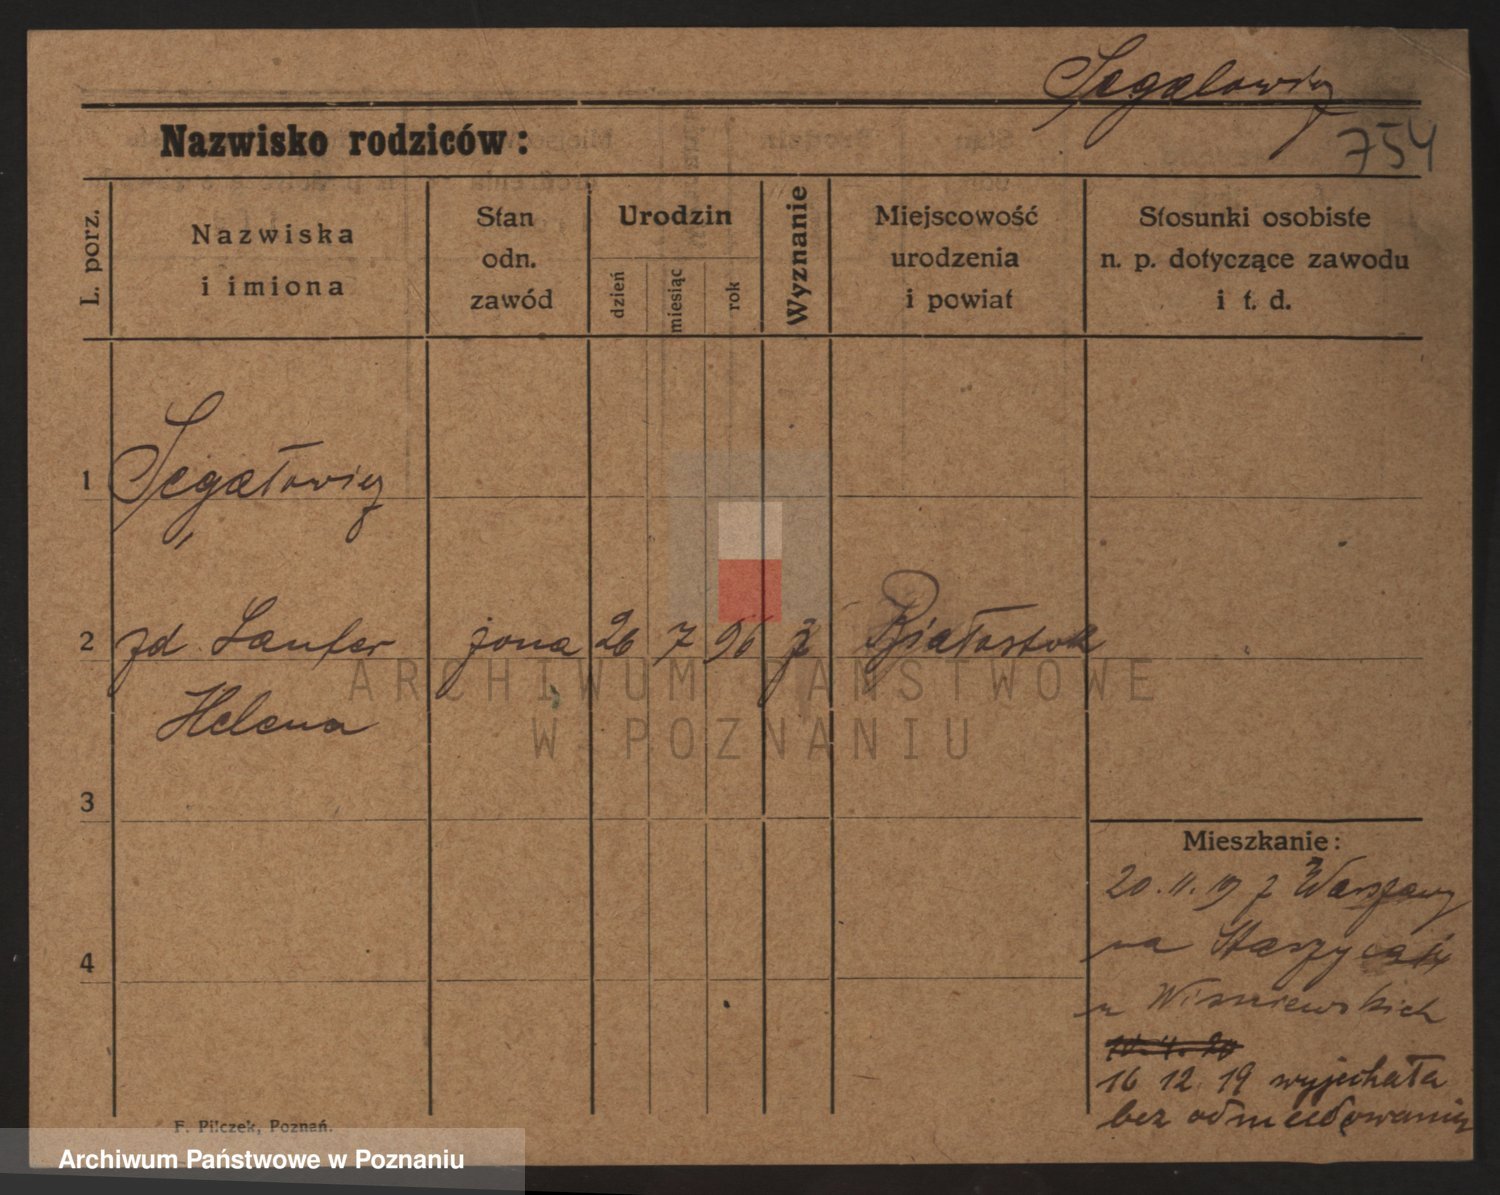 Segalowicz
Nazwisko rodziców:
754
L. porz.
Nazwiska
i imiona
Stan
odn.
zawód
Urodzin
dzień
miesiąc
rok
Wyznanie
Miejscowość
urodzenia
i powiat
Stosunki osobiste
n. p. dotyczące zawodu
i t. d.
1
Segałowicz
2 zd Laufer żona 26 7 96 ż Białostok
Helena
3
4
Mieszkanie:
20.11.19 z Warszawy
na
u Wiszniewskich
16 12 19 wyjechała
bez odmeldowania
F. Pilczek, Poznań.
ARCHIWUM PAŃSTWOWE
W POZNANIU
Archiwum Państwowe w Poznaniu